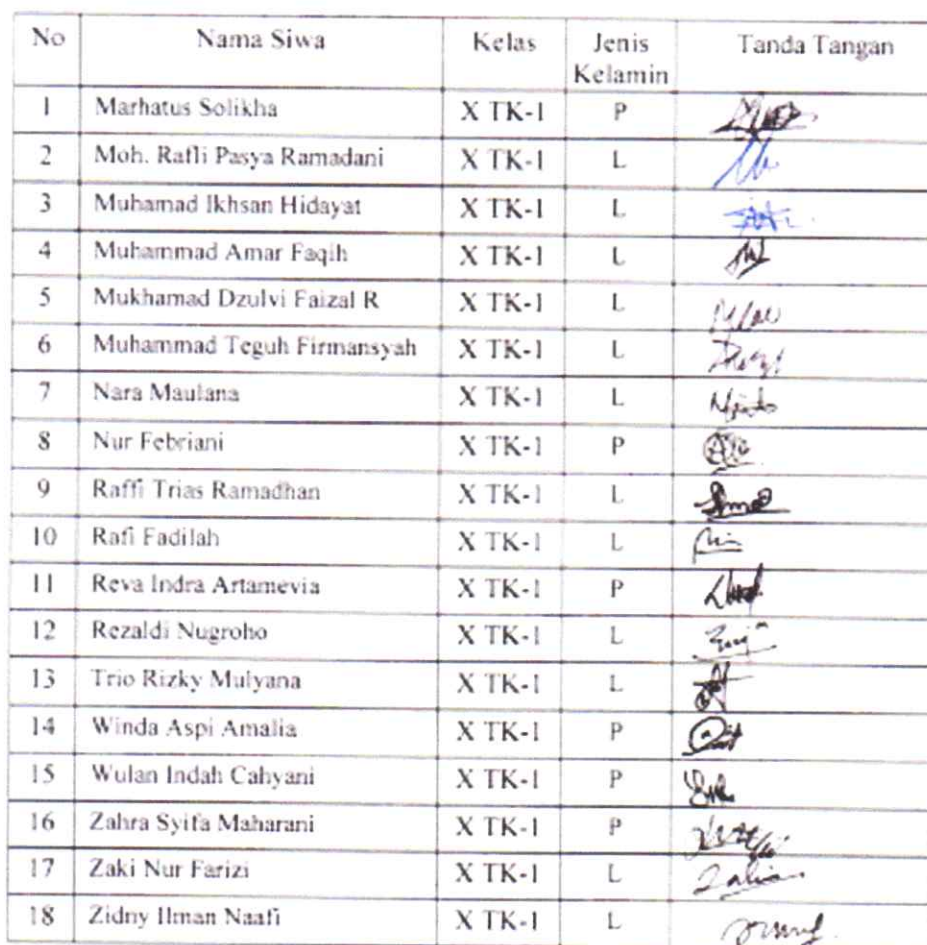 No Nama Siwa Kelas Jenis Kelamin Tanda Tangan
1 Marhatus Solikha X TK-1 P
2 Moh. Rafli Pasya Ramadani X TK-1 L
3 Muhamad Ikhsan Hidayat X TK-1 L
4 Muhammad Amar Faqih X TK-1 L
5 Mukhamad Dzulvi Faizal R X TK-1 L
6 Muhammad Teguh Firmansyah X TK-1 L
7 Nara Maulana X TK-1 L
8 Nur Febriani X TK-1 P
9 Raffi Trias Ramadhan X TK-1 L
10 Rafi Fadilah X TK-1 L
11 Reva Indra Artamevia X TK-1 P
12 Rezaldi Nugroho X TK-1 L
13 Trio Rizky Mulyana X TK-1 L
14 Winda Aspi Amalia X TK-1 P
15 Wulan Indah Cahyani X TK-1 P
16 Zahra Syifa Maharani X TK-1 P
17 Zaki Nur Farizi X TK-1 L
18 Zidny Ilman Naafi X TK-1 L